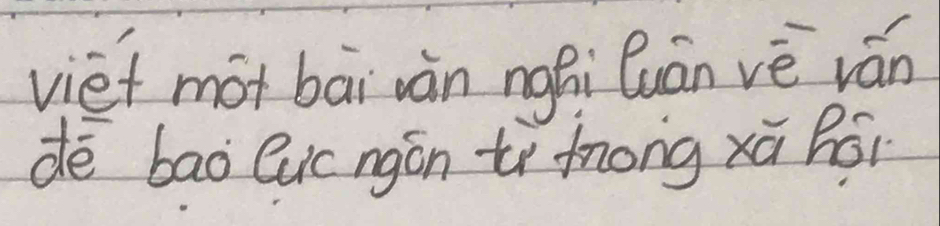 viết một bài văn nghị luận về vấn
đề bạo lực ngôn từ trong xã hội.